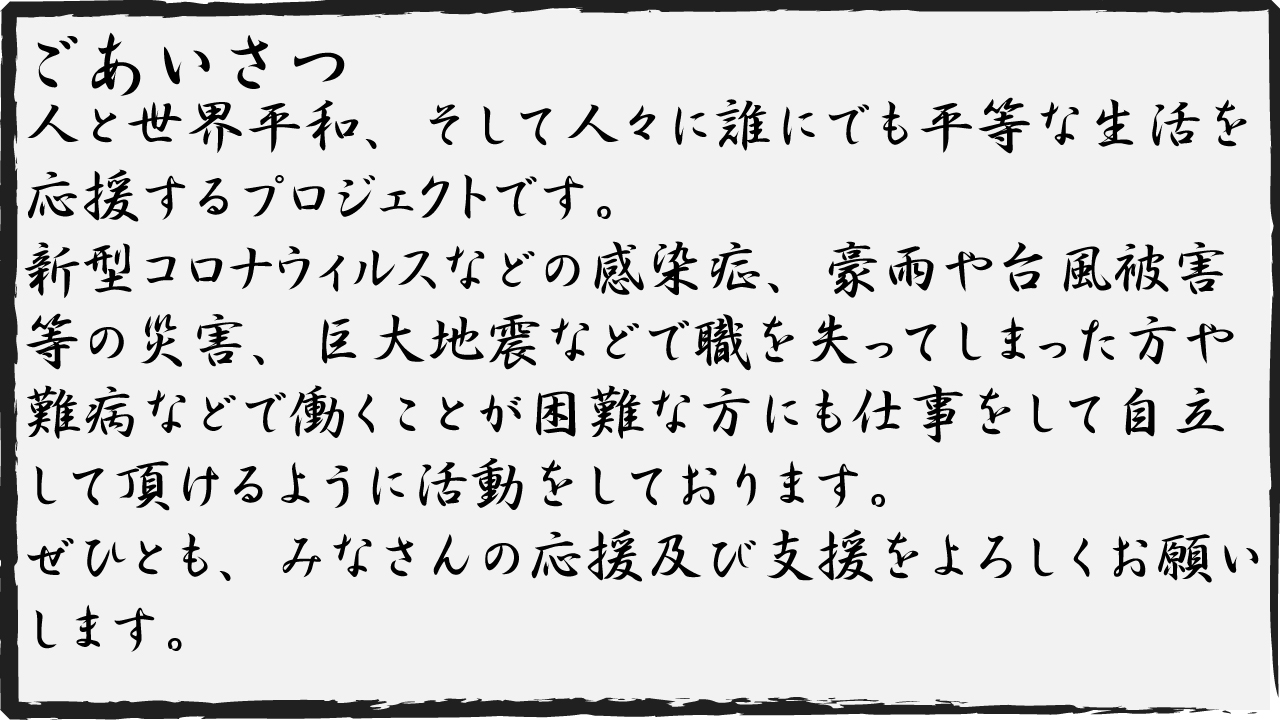 ごあいさつ
人と世界平和、そして人々に誰にでも平等な生活を
応援するプロジェクトです。
新型コロナウィルスなどの感染症、豪雨や台風被害
等の災害、巨大地震などで職を失ってしまった方や
難病などで働くことが困難な方にも仕事をして自立
して頂けるように活動をしております。
ぜひとも、みなさんの応援及び支援をよろしくお願い
します。